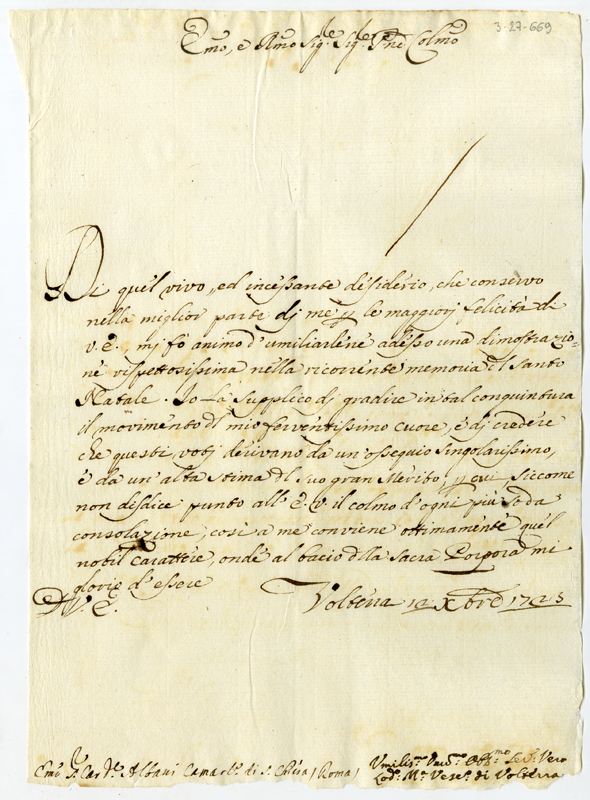 3-27-669
Emo, e Rmo Sig.re Sig.re Pne Colmo
Di quel vivo, ed incessante desiderio, che conservo
nella miglior parte dj me p le maggiorj felicità di
V.E. mi fò animo d'umiliarlene adesso una dimostrazio=
ne rispettosissima nella ricorrente memoria del Santo
Natale. Io La supplico dj gradire in tal conguintura
il movimento dl mio ferventissimo cuore, e dj credere
che questi votj derivano da un'ossequio singolarissimo,
e da un'alta stima dl suo gran Merito, p cui, siccome
non disdice punto all'E.V. il colmo d'ogni più soda
consolazione, così a me conviene ottimamente quel
nobil carattere, onde al bacio dlla sacra Porpora mi
glorio d'essere
D V.E.
Volterra 12 Xbre 1723
Emo Sr Car.le Albani Camarl.o di S. Chiesa (Roma)
Umiliss.mo Dev.mo Obb.mo Ser.e Vero
Lod.o M.a Vesc.o di Volterra